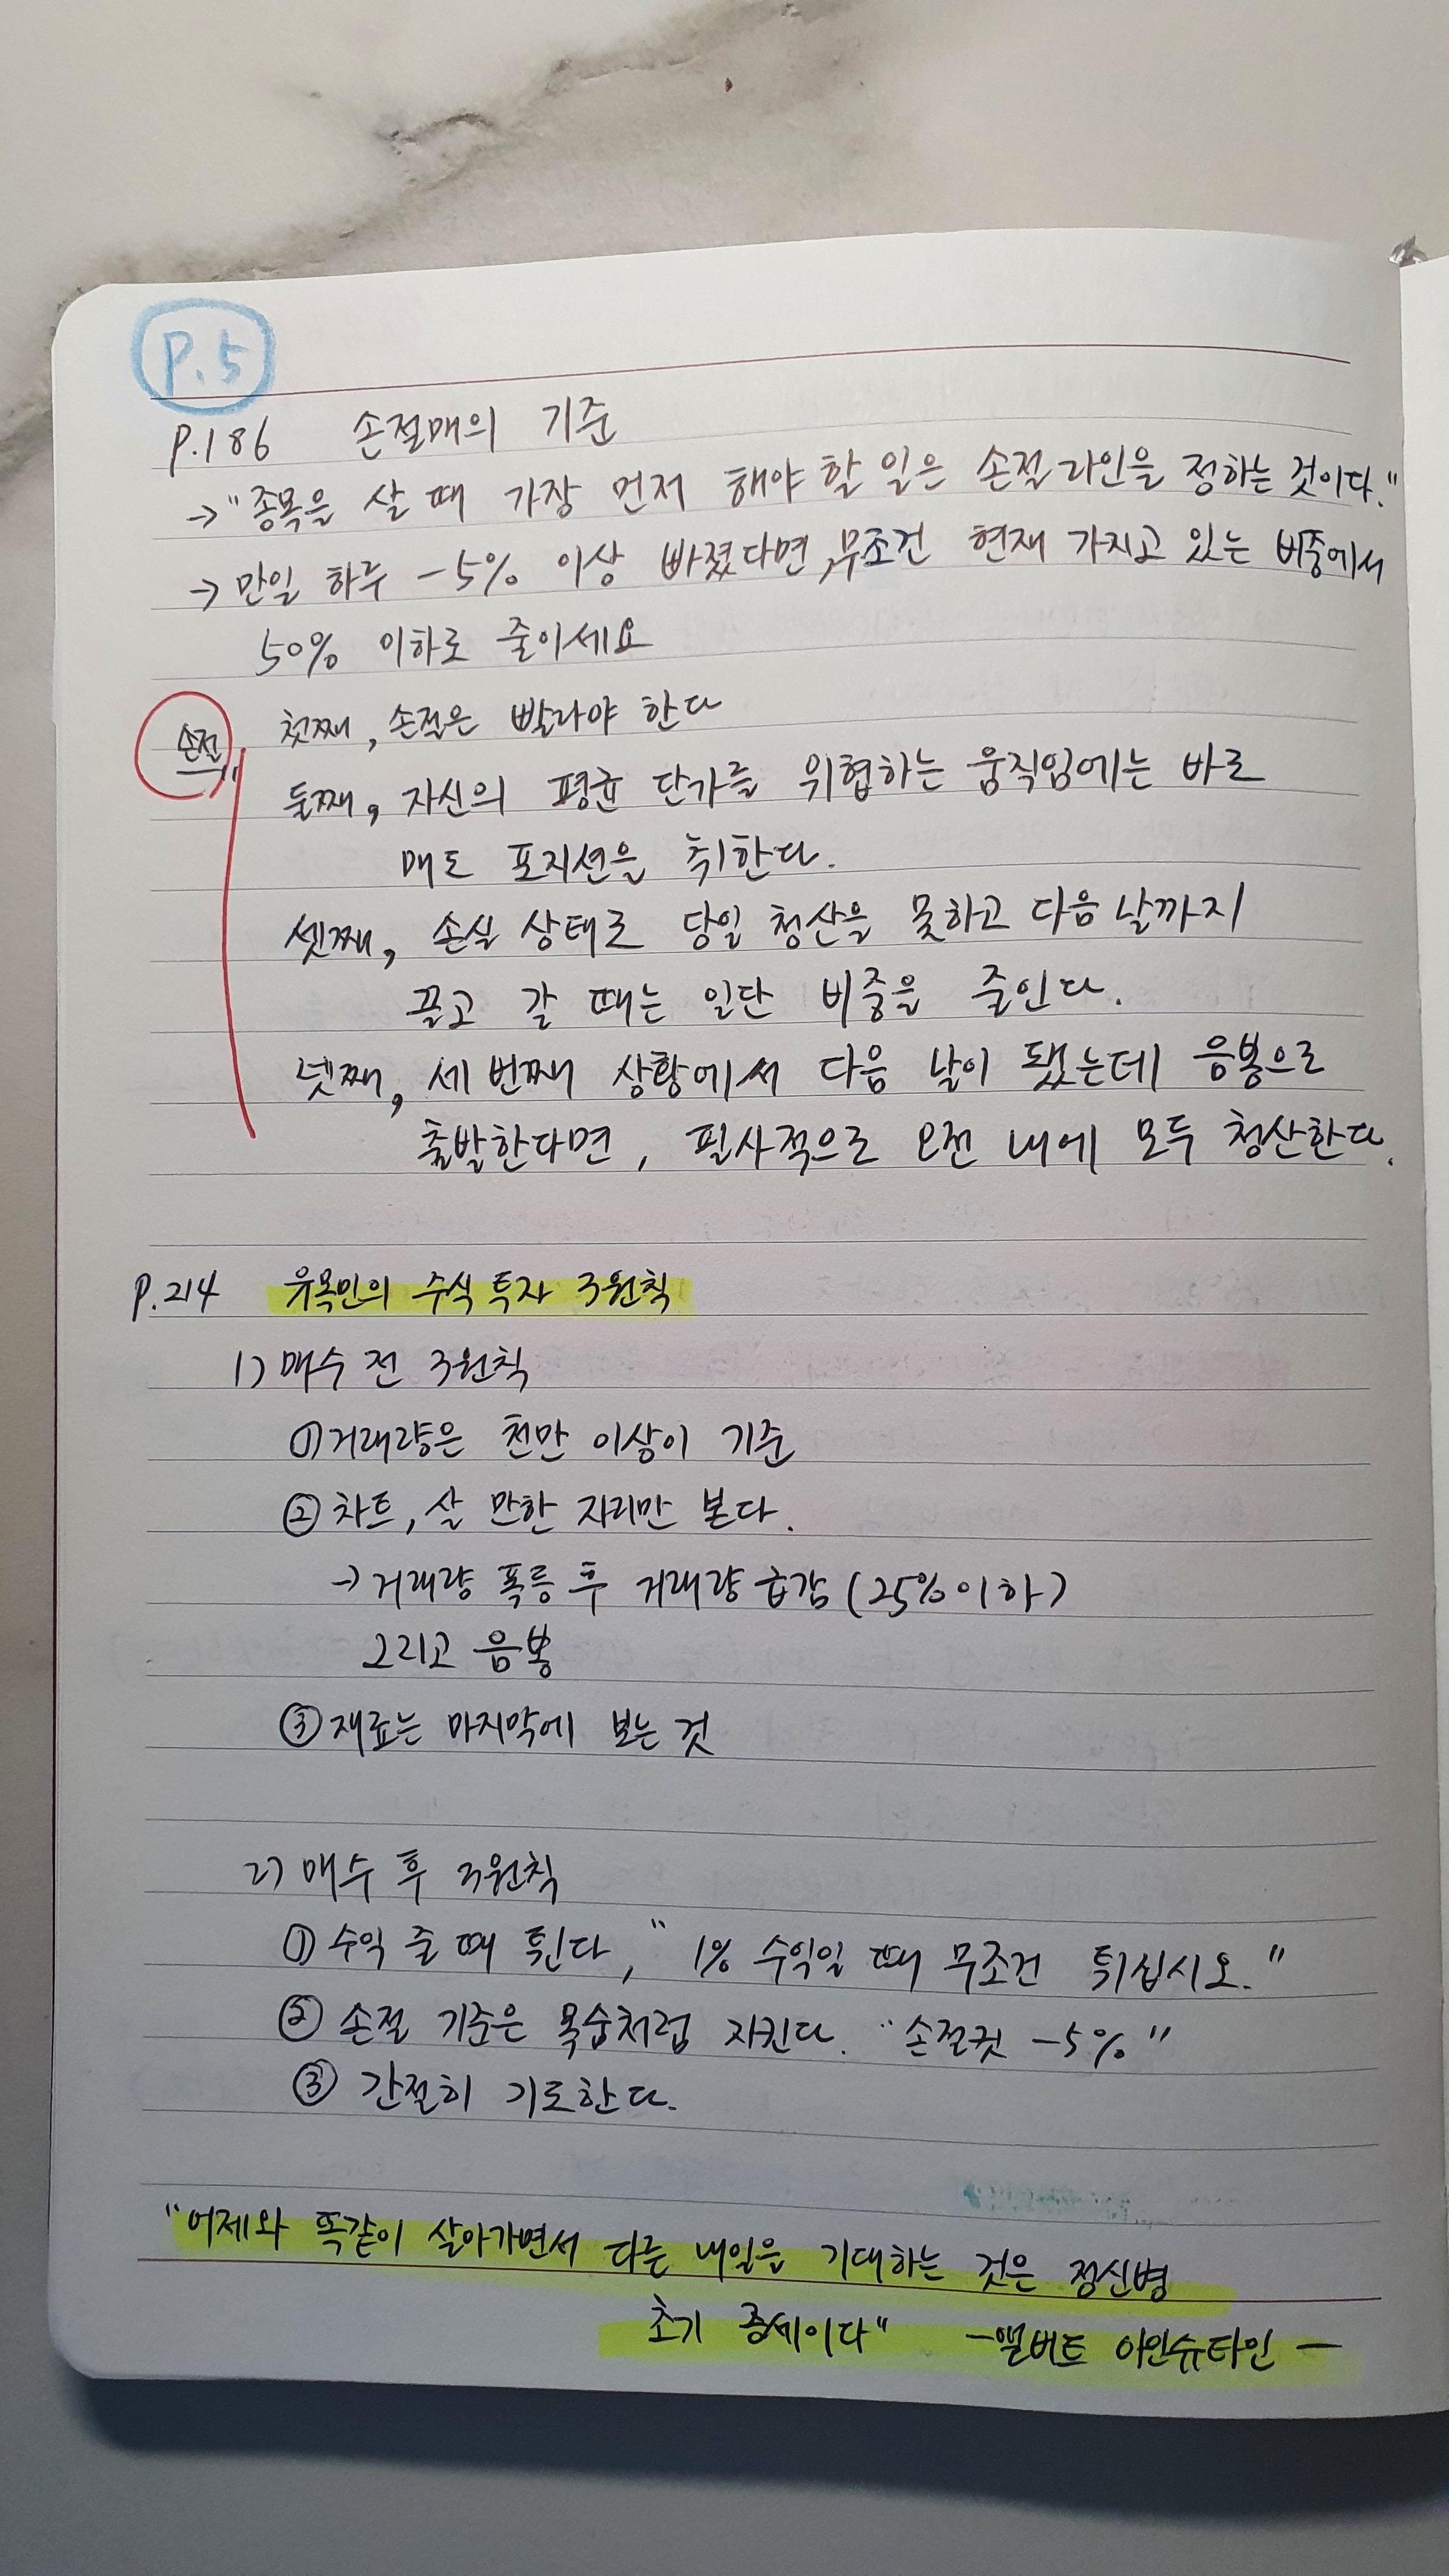 P.5
P.186 손절매의 기준
→ "종목을 살 때 가장 먼저 해야 할 일은 손절라인을 정하는 것이다."
→ 만일 하루 -5% 이상 빠졌다면, 무조건 현재 가지고 있는 비중에서
50% 이하로 줄이세요
손절
첫째, 손절은 빨라야 한다
둘째, 자신의 평균 단가를 위협하는 움직임에는 바로
매도 포지션을 취한다.
셋째, 손실 상태로 당일 청산을 못하고 다음 날까지
끌고 갈 때는 일단 비중을 줄인다.
넷째, 세 번째 상황에서 다음 날이 됐는데 음봉으로
출발한다면, 필사적으로 오전 내에 모두 청산한다.
P.214 유목민의 주식 투자 3원칙
1) 매수 전 3원칙
① 거래량은 천만 이상이 기준
② 차트, 살 만한 자리만 본다.
→ 거래량 폭등 후 거래량 급감 (25% 이하)
그리고 음봉
③ 재료는 마지막에 보는 것
2) 매수 후 3원칙
① 수익 줄 때 튄다, "1% 수익일 때 무조건 튀십시오."
② 손절 기준은 목숨처럼 지킨다. "손절컷 -5%"
③ 간절히 기도한다.
"어제와 똑같이 살아가면서 다른 내일을 기대하는 것은 정신병
초기 증세이다" -앨버트 아인슈타인-